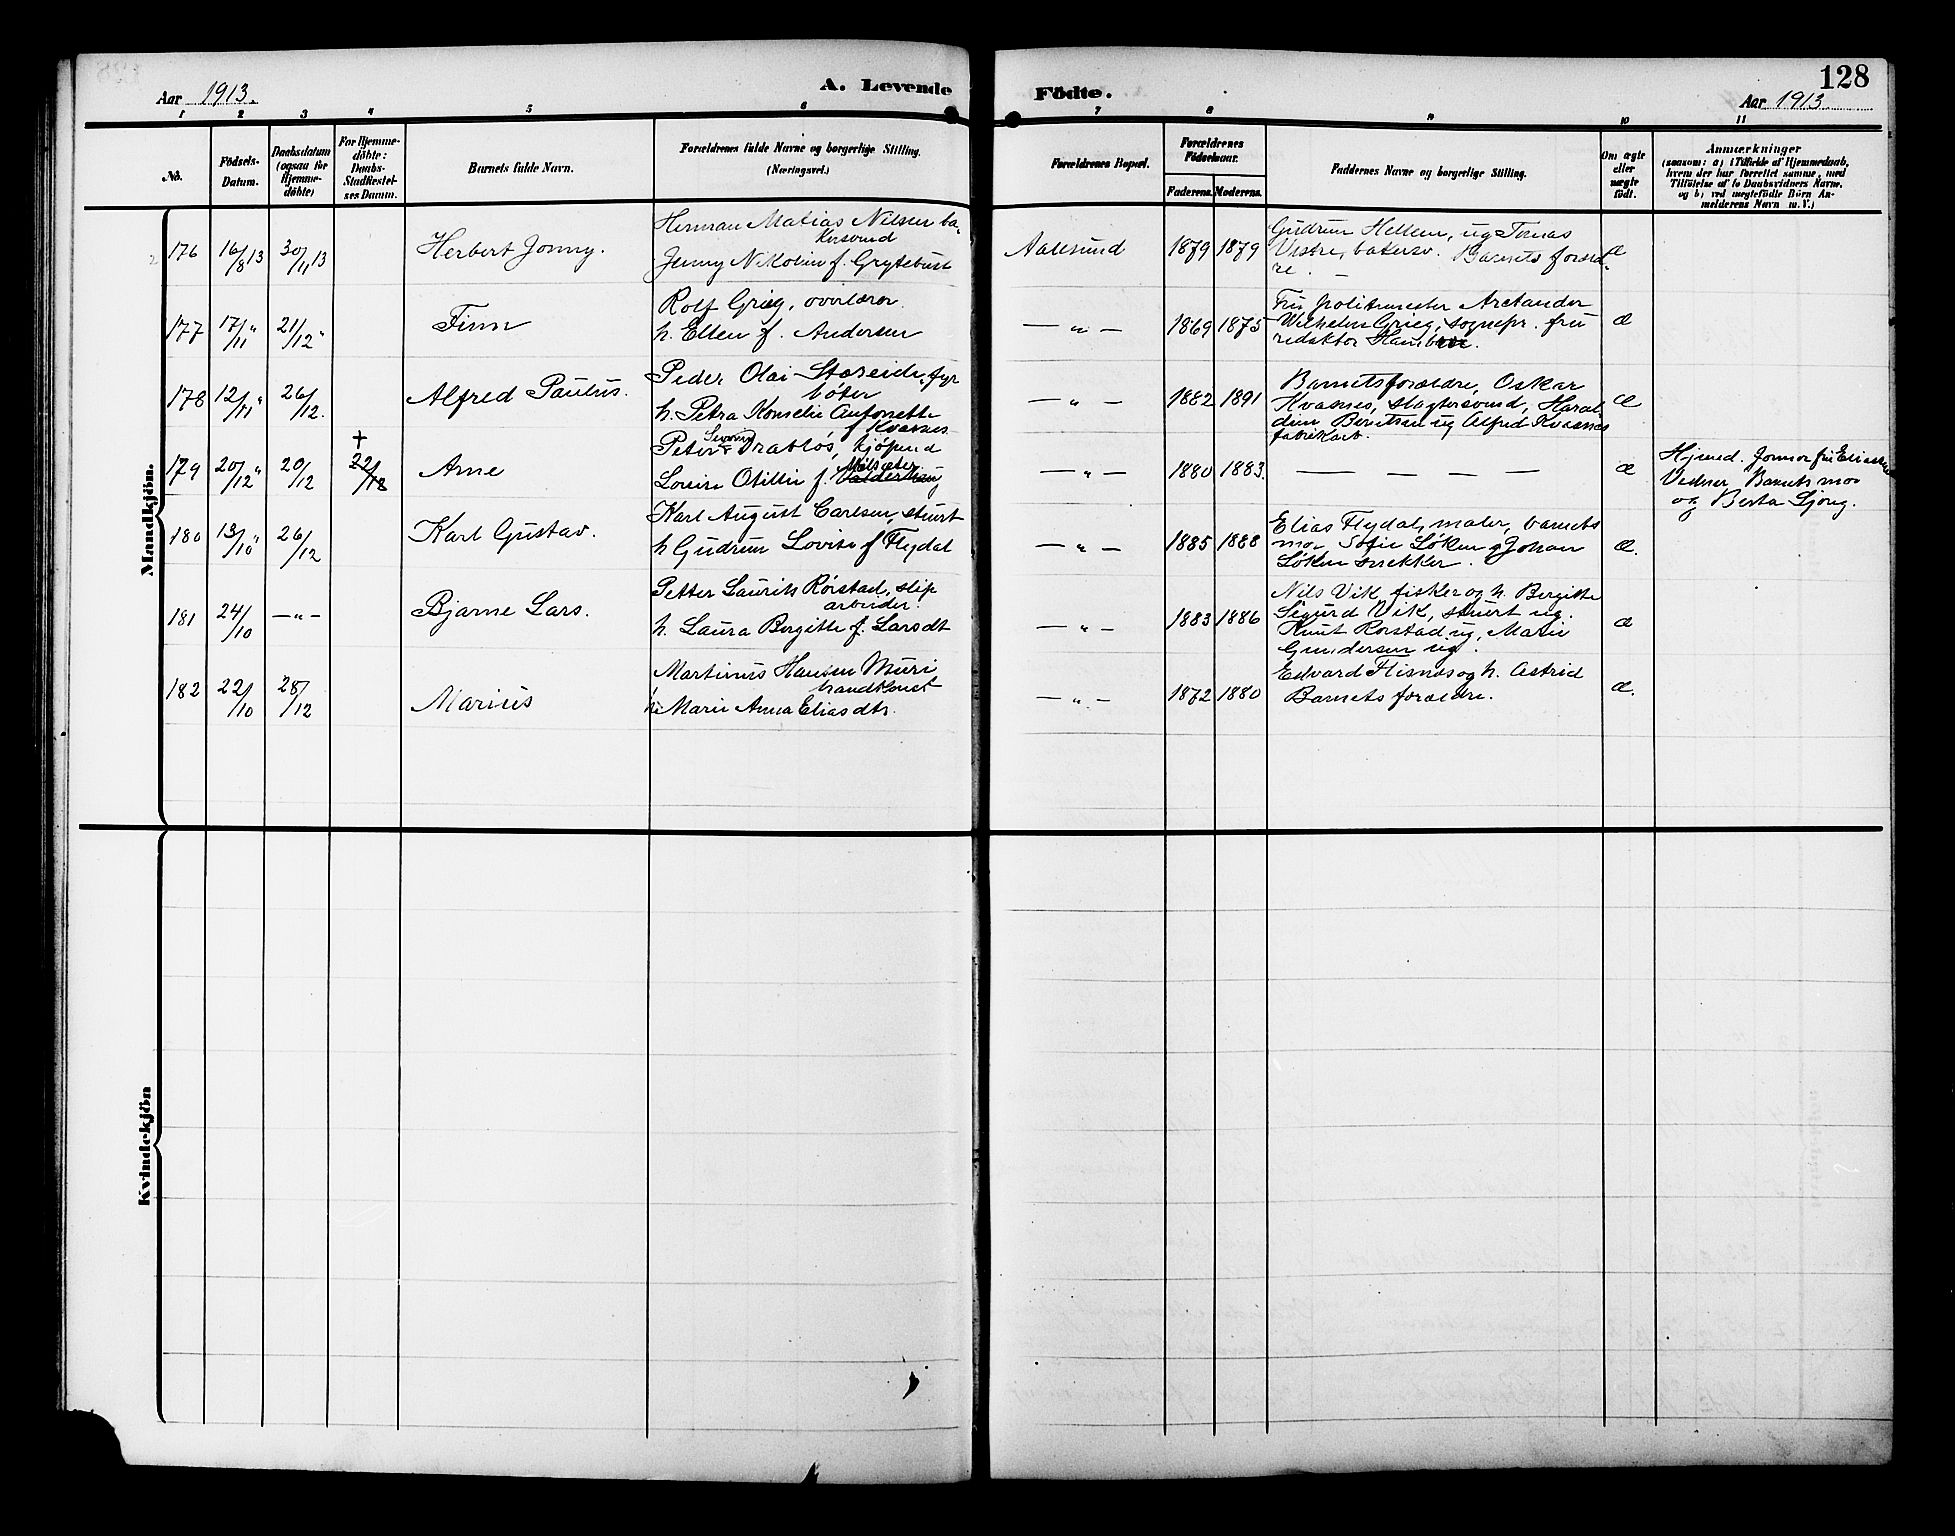 Aar 1913.
A. Levende Födte.
128
Aar 1913
1 2 3 4 5 6 7 8 9 10 11
No.
Födsels-
Datum.
Daabsdatum
(ogsaa for
Hjemme-
döbte)
For Hjemme-
döbte:
Daabs-
Stadfæstel-
ses Datum.
Barnets fulde Navn.
Forældrenes fulde Navne og borgerlige Stilling.
(Næringsvei.)
Forældrenes Bopæl.
Forældrenes
Födselsaar.
Faderens. Moderens.
Faddernes Navne og borgerlige Stilling.
Om ægte
eller
uægte
født.
Anmærkninger
(saasom: a) i Tilfælde af Hjemmedaab,
hvem der har forrettet samme, med
Tilföielse af to Daabsvidners Navne.
og b) ved uægtefödte Börn An-
melderens Navn m.V.)
Mandkjön.
176 16/8 13 30/11 13 Herbert Jonny.
Herman Matias Nilsen ba-
kersvend
Jenny N Molvin f. Grytebust
Aalesund 1879 1879
Gudrun Hellem, ug Tomas
Vestre, bakersv. Barnets foræld-
re.
æ
177 17/11 " 21/12 " Finn
Rolf Grieg, overlærer
h. Ellen f. Andersen
— " — 1869 1875
Fru politimester Arctander
Wilhelm Grieg, sognepr. fru
redaktør
æ
178 12/11 " 26/12. Alfred Paulus.
Peder Olai Støreide, fyr
böter
h. Petra Kornelie Antonette
f Kvasnes
— " — 1882 1891
Barnets forældre, Oskar
Kvasnes, slagtersvend, Haral-
dine Berntsen ug Alfred Kvasnes
fabrikarb.
æ
179 20/12 " 20/12 + 22/12 Arne
Peter Severin Drabløs, kjøpmd
Lovise Otillie f. Valderhaug
— " — 1880 1883. — — — — —
æ
Hjemd. Jormor fru Eliassen
Vedner Barnets mor
og Berta Sjong.
180 13/10 " 26/12 Karl Gustav.
Karl August Carlsen, stuert
h Gudrun Lovise f Flydal
— " — 1885 1888
Elias Flydal, maler, barnets
mor, Sofie Løken og Johan
Løken snekker.
æ.
181 24/10 — " — Bjarne Lars.
Petter Laurits Rørstad, slip
arbeider.
h. Laura Bergitte f. Larsdt
— " — 1883 1886
Nils Vik fisker og h. Bergitte
Sigurd Vik, stuert ug.
Knut Rørstad ug, Marie
Gundersen ug.
æ
182 22/10 28/12 Marius
Martinus Hansen Muri
brandkonst
h. Marie Anna Eliasdtr.
— " — 1872 1880
Edvard Flisnes og h. Astrid
Barnets forældre.
æ.
Kvindekjön